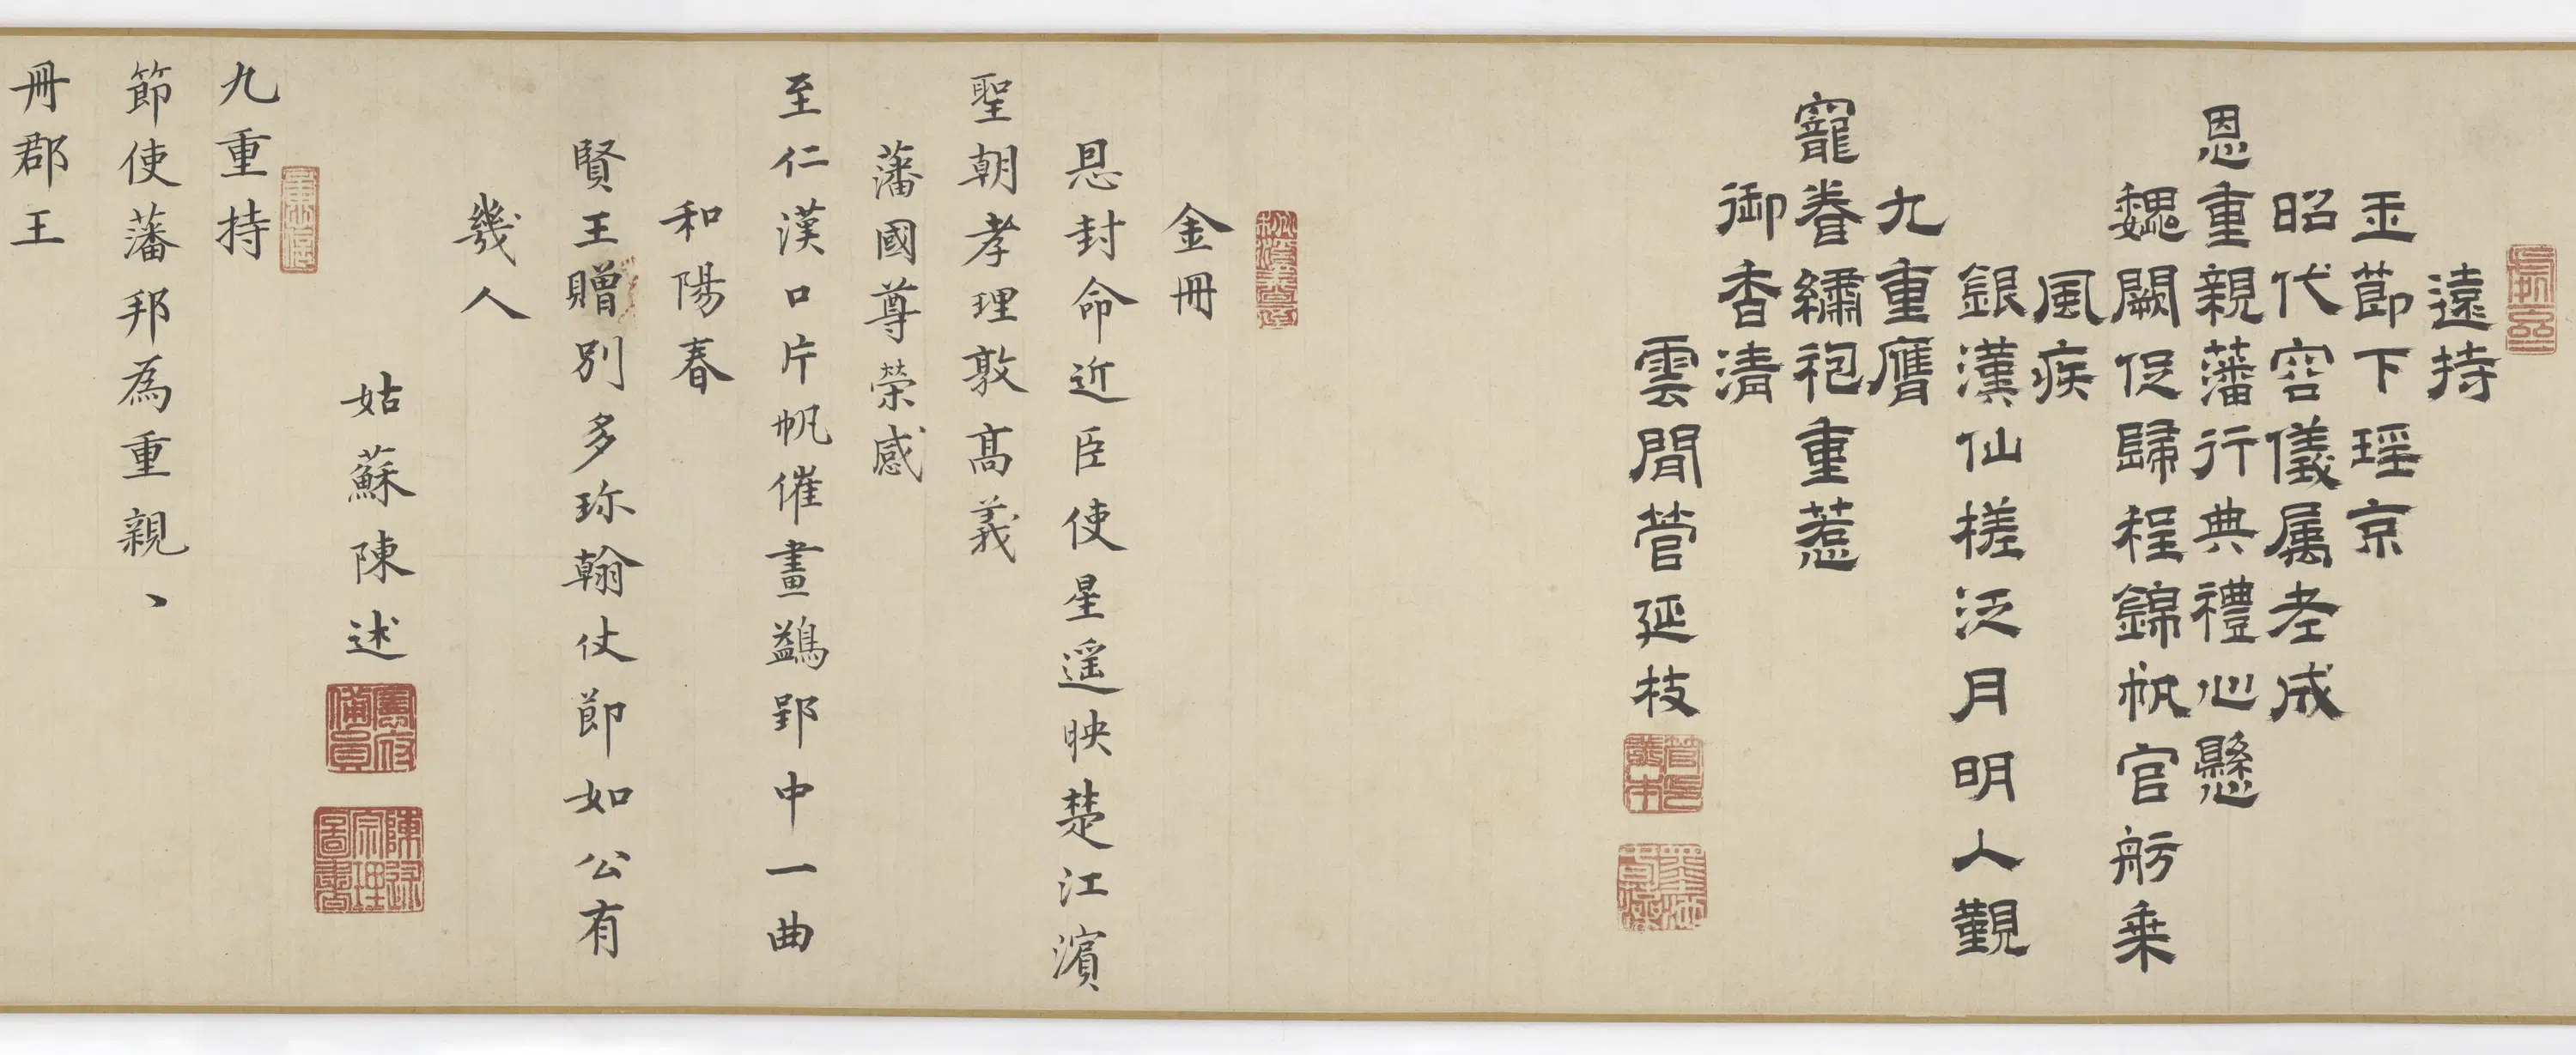 遠持
玉節下瑶京
昭代容儀属老成
恩重親藩行典禮心懸
魏闕促歸程錦帆官舫乗
風疾
銀漢仙槎泛月明人覲
九重膺
寵眷繡袍重惹
御香清
雲間管延枝
金冊
恩封命近臣使星遥映楚江濱
聖朝孝理敦髙義
藩國尊榮感
至仁漢口片帆催畫鷁郢中一曲
和陽春
賢王贈別多珎翰仗節如公有
幾人
姑蘇陳述
九重持
節使藩邦為重親丶
冊郡王